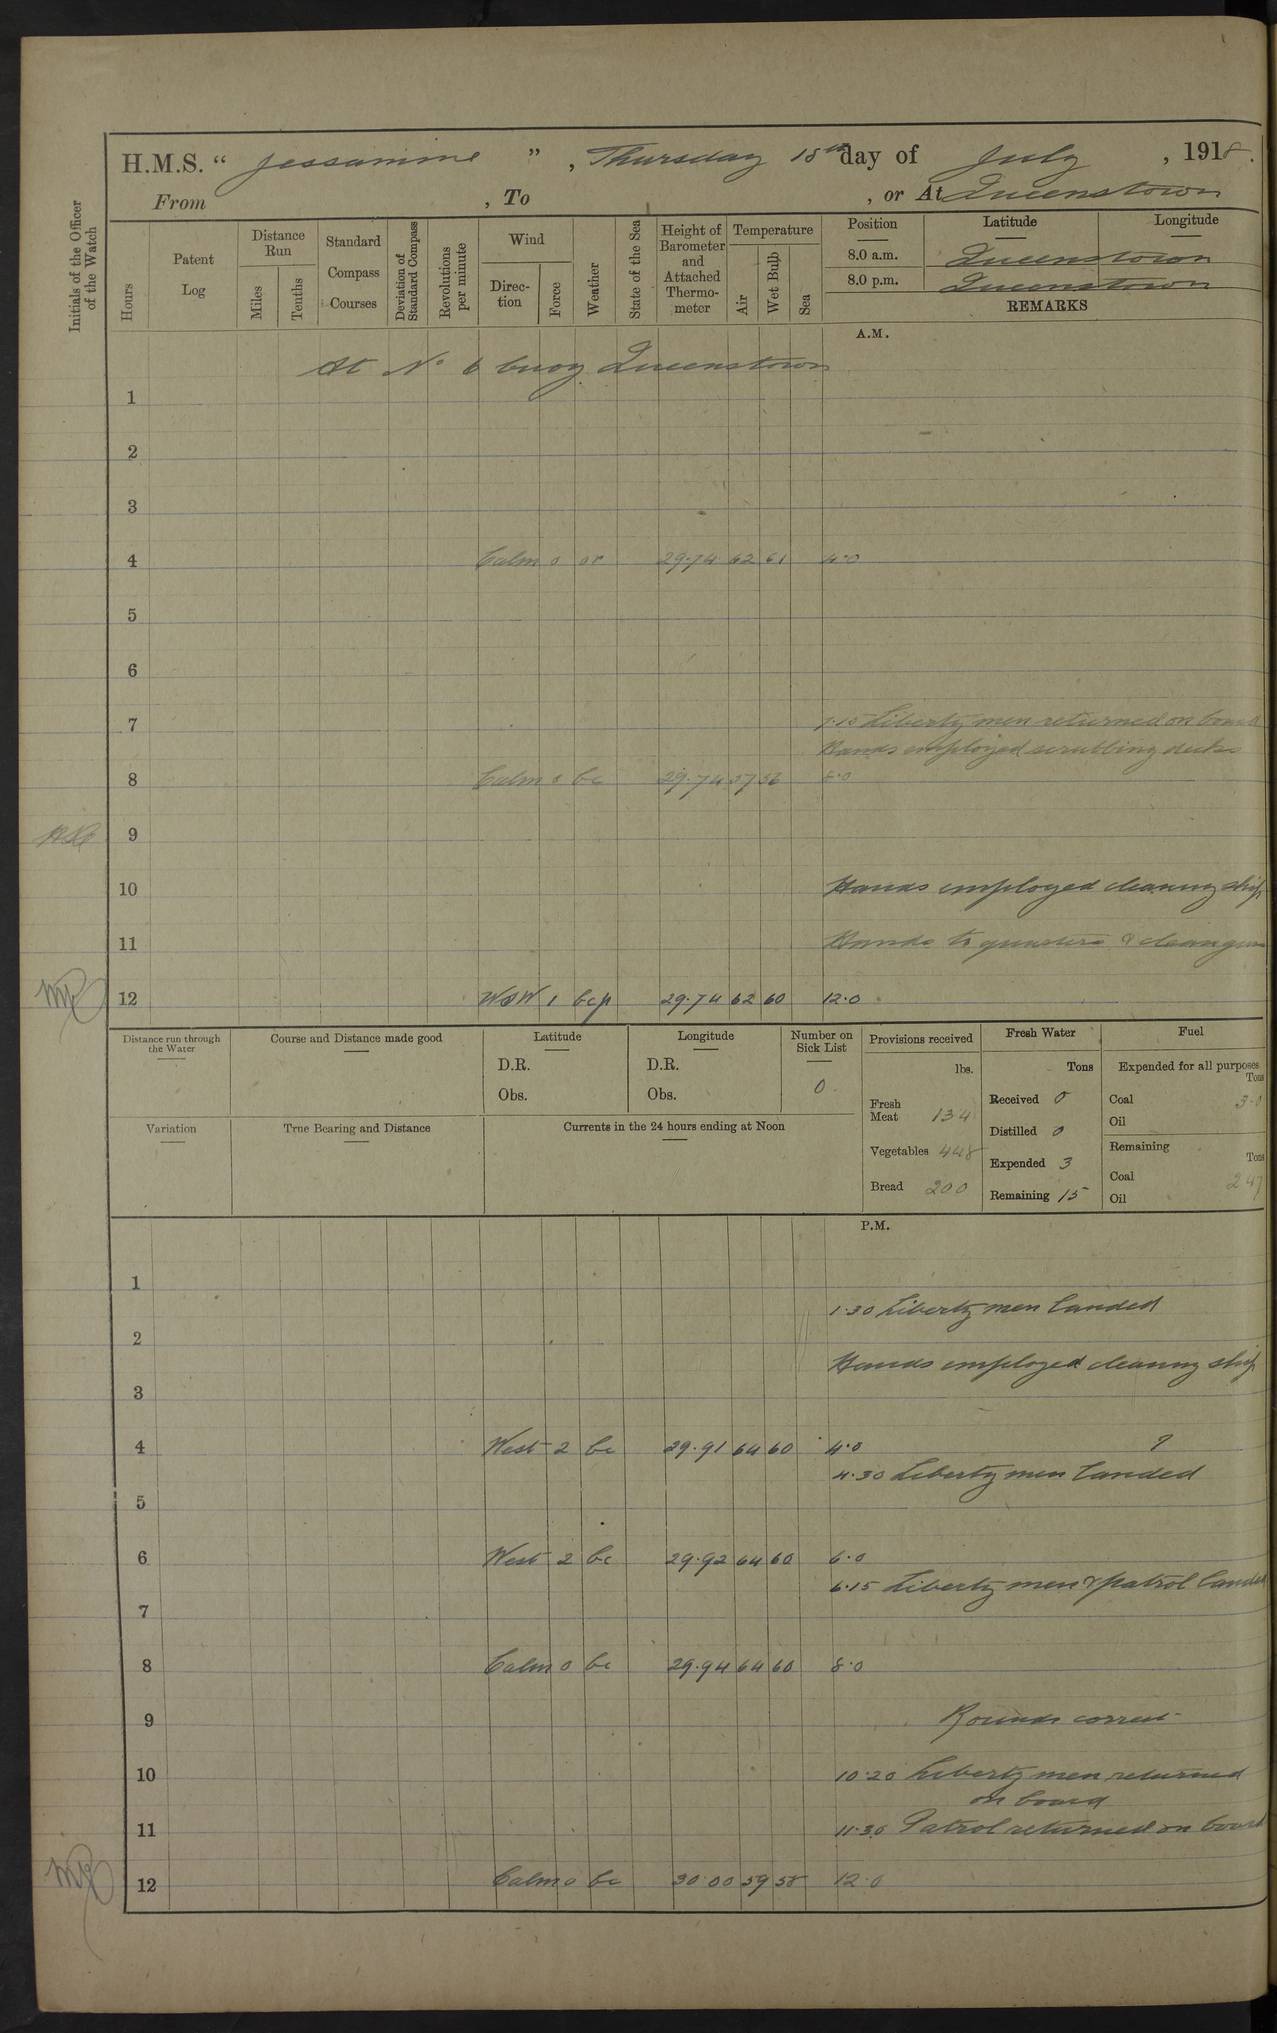 H.M.S. “ Jessamine ” , Thursday 18th day of July , 1918.
From , To , or At Queenstown
Initials of the Officer of the Watch
Hours
Patent Log
Distance Run
Miles
Tenths
Standard Compass Courses
Deviation of Standard Compass
Revolutions per minute
Wind
Direction
Force
Weather
State of the Sea
Height of Barometer and Attached Thermometer
Temperature
Air
Wet Bulb
Sea
Position Latitude Longitude
8.0 a.m. Queenstown
8.0 p.m. Queenstown
REMARKS
A.M.
At No 6 buoy Queenstown
1
2
3
4 Calm 0 or 29.74 62 61 4.0
5
6
7 7.15 Liberty men returned on board
Hands employed scrubbing decks
8 Calm 0 bc 29.74 57 56 8.0
9
10 Hands employed cleaning ship
11 Hands to quarters & clean guns
12 WSW 1 bcp 29.74 62 60 12.0
Distance run through the Water
Course and Distance made good
Latitude
D.R.
Obs.
Longitude
D.R.
Obs.
Number on Sick List
0
Provisions received
lbs.
Fresh Meat 134
Vegetables 448
Bread 200
Fresh Water
Tons
Received 0
Distilled 0
Expended 3
Remaining 15
Fuel
Expended for all purposes
Tons
Coal 3.0
Oil
Remaining
Tons
Coal 247
Oil
Variation
True Bearing and Distance
Currents in the 24 hours ending at Noon
P.M.
1
1.30 Liberty men landed
2
Hands employed cleaning ship
3
4 West 2 bc 29.91 64 60 4.0 ?
4.30 Liberty men landed
5
6 West 2 bc 29.92 64 60 6.0
6.15 Liberty men & patrol landed
7
8 Calm 0 bc 29.94 64 60 8.0
9 Rounds correct
10 10.20 Liberty men returned
on board
11 11.30 Patrol returned on board
12 Calm 0 bc 30.00 59 58 12.0